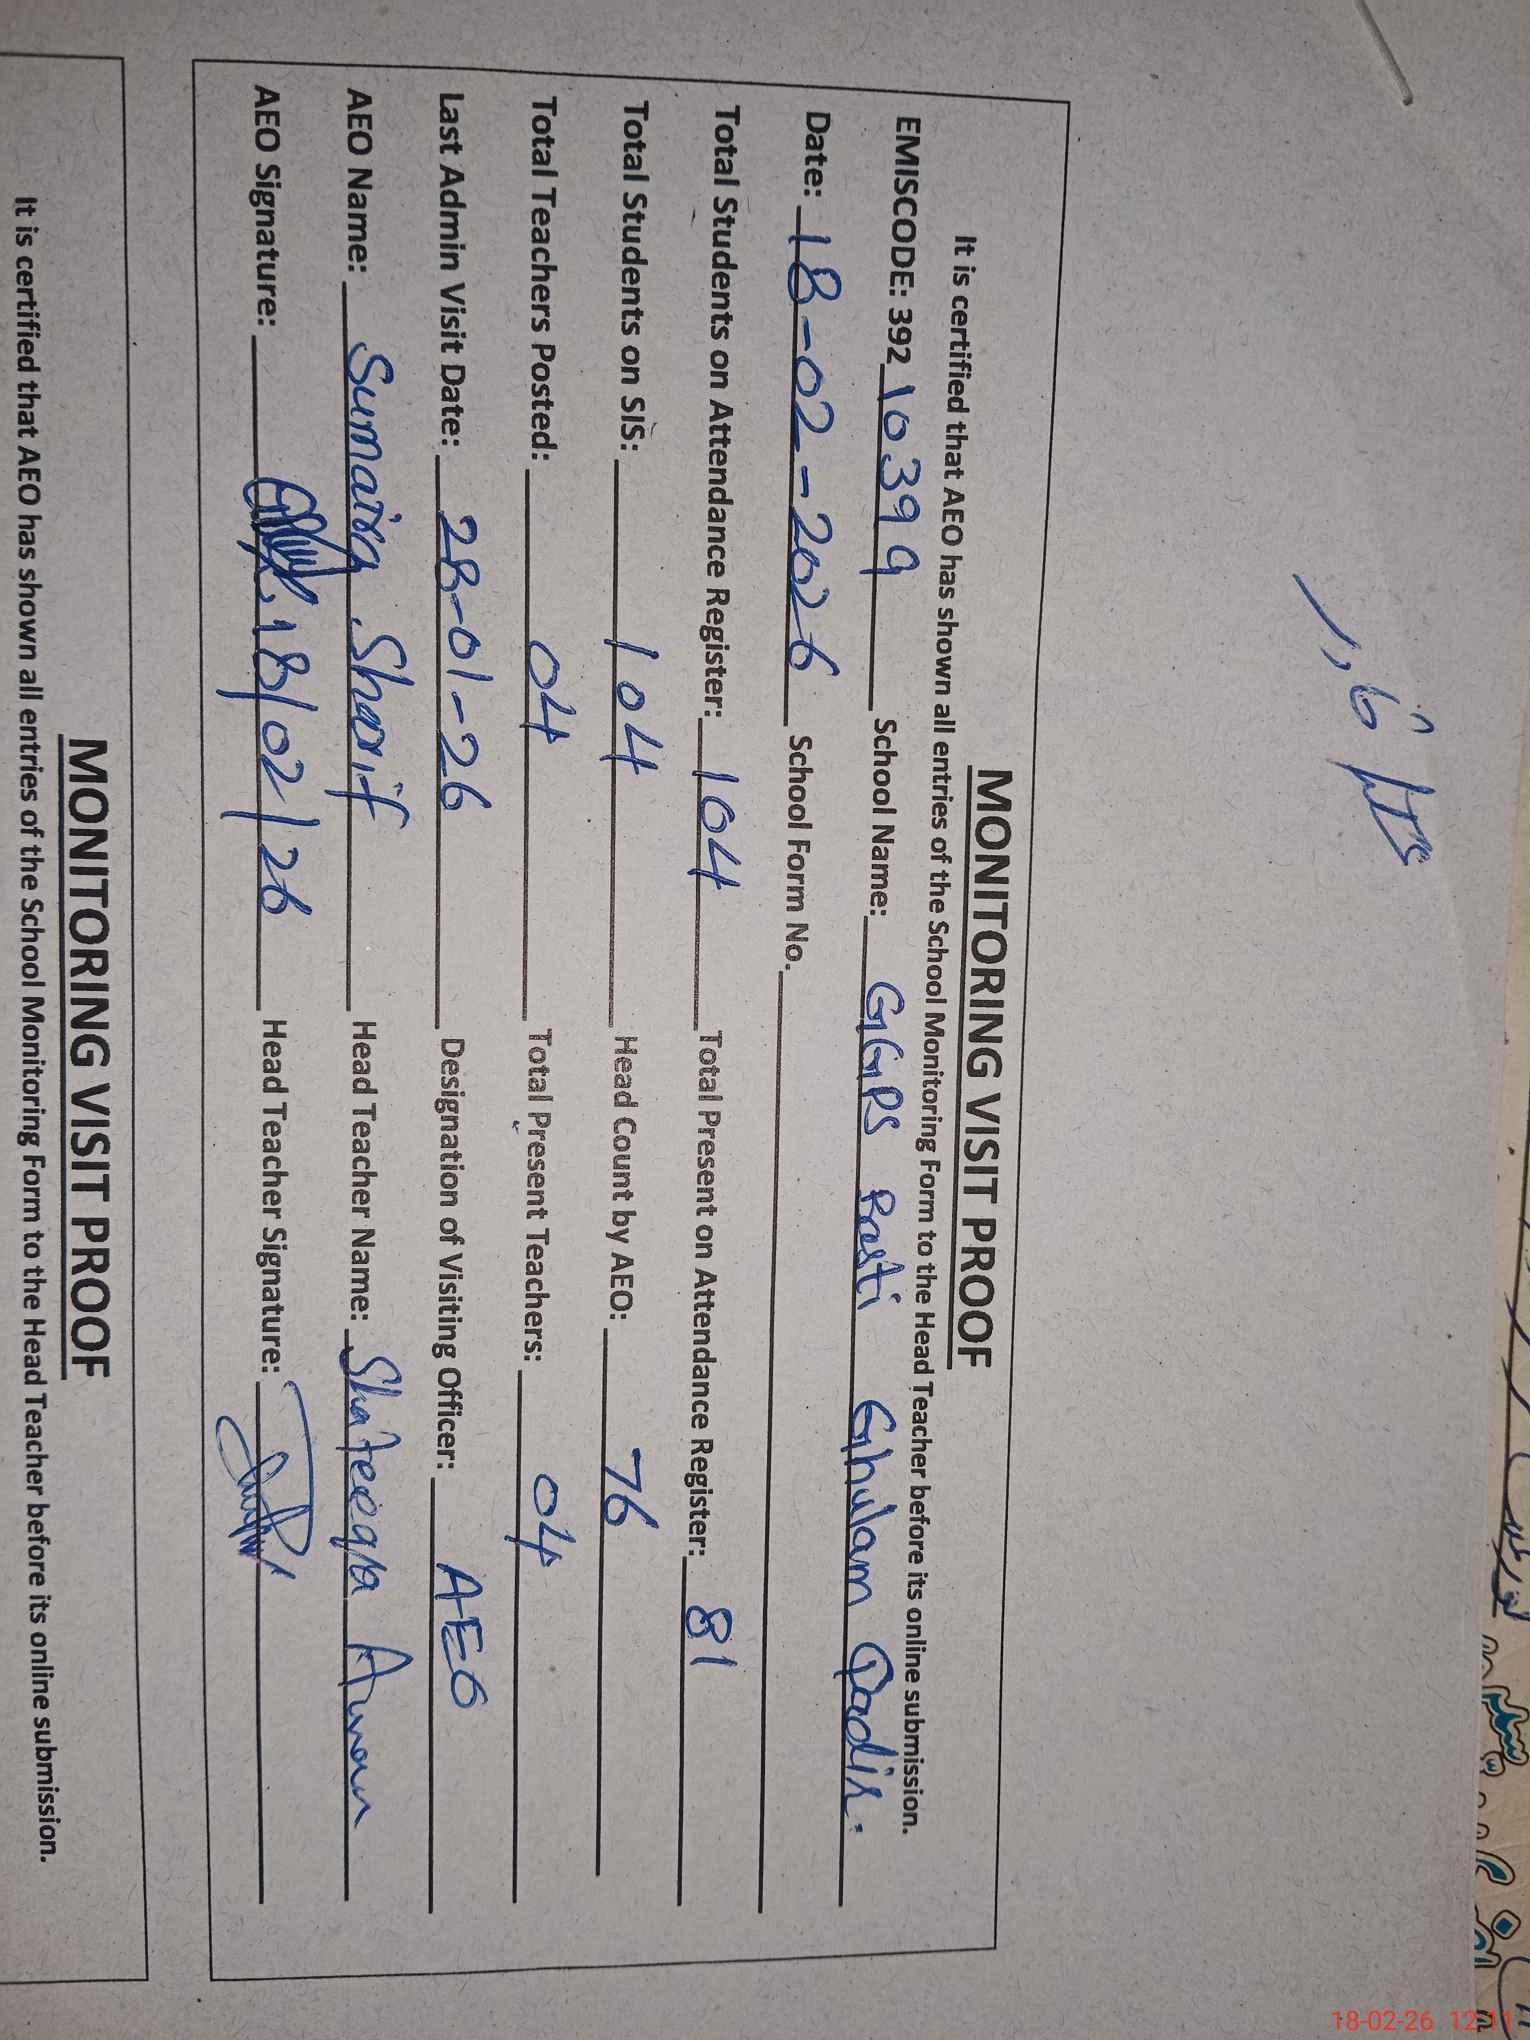 MONITORING VISIT PROOF
It is certified that AEO has shown all entries of the School Monitoring Form to the Head Teacher before its online submission.
EMISCODE: 39210399 School Name: GGPS Basti Ghulam Qadir.
Date: 18-02-2026 School Form No.
Total Students on Attendance Register: 104 Total Present on Attendance Register: 81
Total Students on SIS: 104 Head Count by AEO: 76
Total Teachers Posted: 04 Total Present Teachers: 04
Last Admin Visit Date: 28-01-26 Designation of Visiting Officer: AEO
AEO Name: Sumaira Sharif Head Teacher Name: Shafeeqa
AEO Signature: 18/02/26 Head Teacher Signature:
MONITORING VISIT PROOF
It is certified that AEO has shown all entries of the School Monitoring Form to the Head Teacher before its online submission.
18-02-26